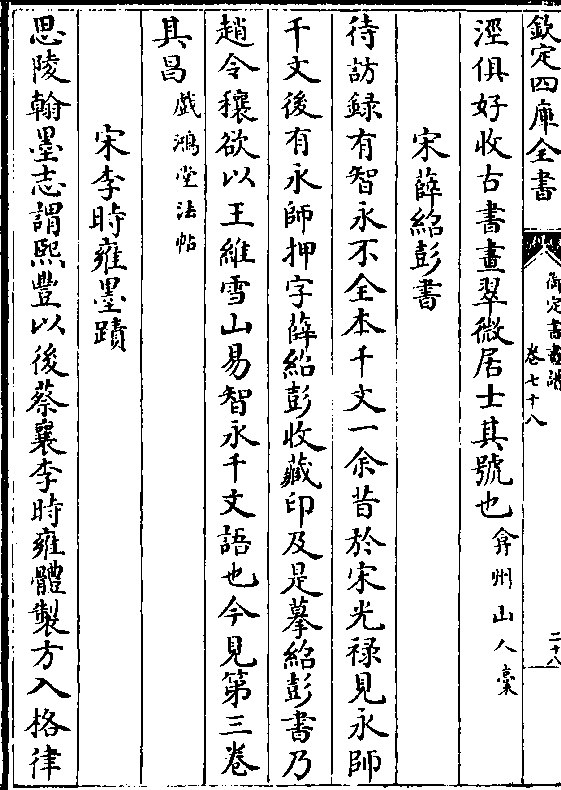 欽定四庫全書
御定書畫譜
卷七十八
二十八
涇俱好收古書畫翠微居士其號也弇州山人稾
宋薛紹彭書
待訪録有智永不全本千文一余昔於宋光祿見永師
千文後有永師押字薛紹彭收藏印及是摹紹彭書乃
趙令穰欲以王維雪山易智永千文語也今見第三卷
其昌戲鴻堂法帖
宋李時雍墨蹟
思陵翰墨志謂熙豐以後蔡襄李時雍體製方入格律